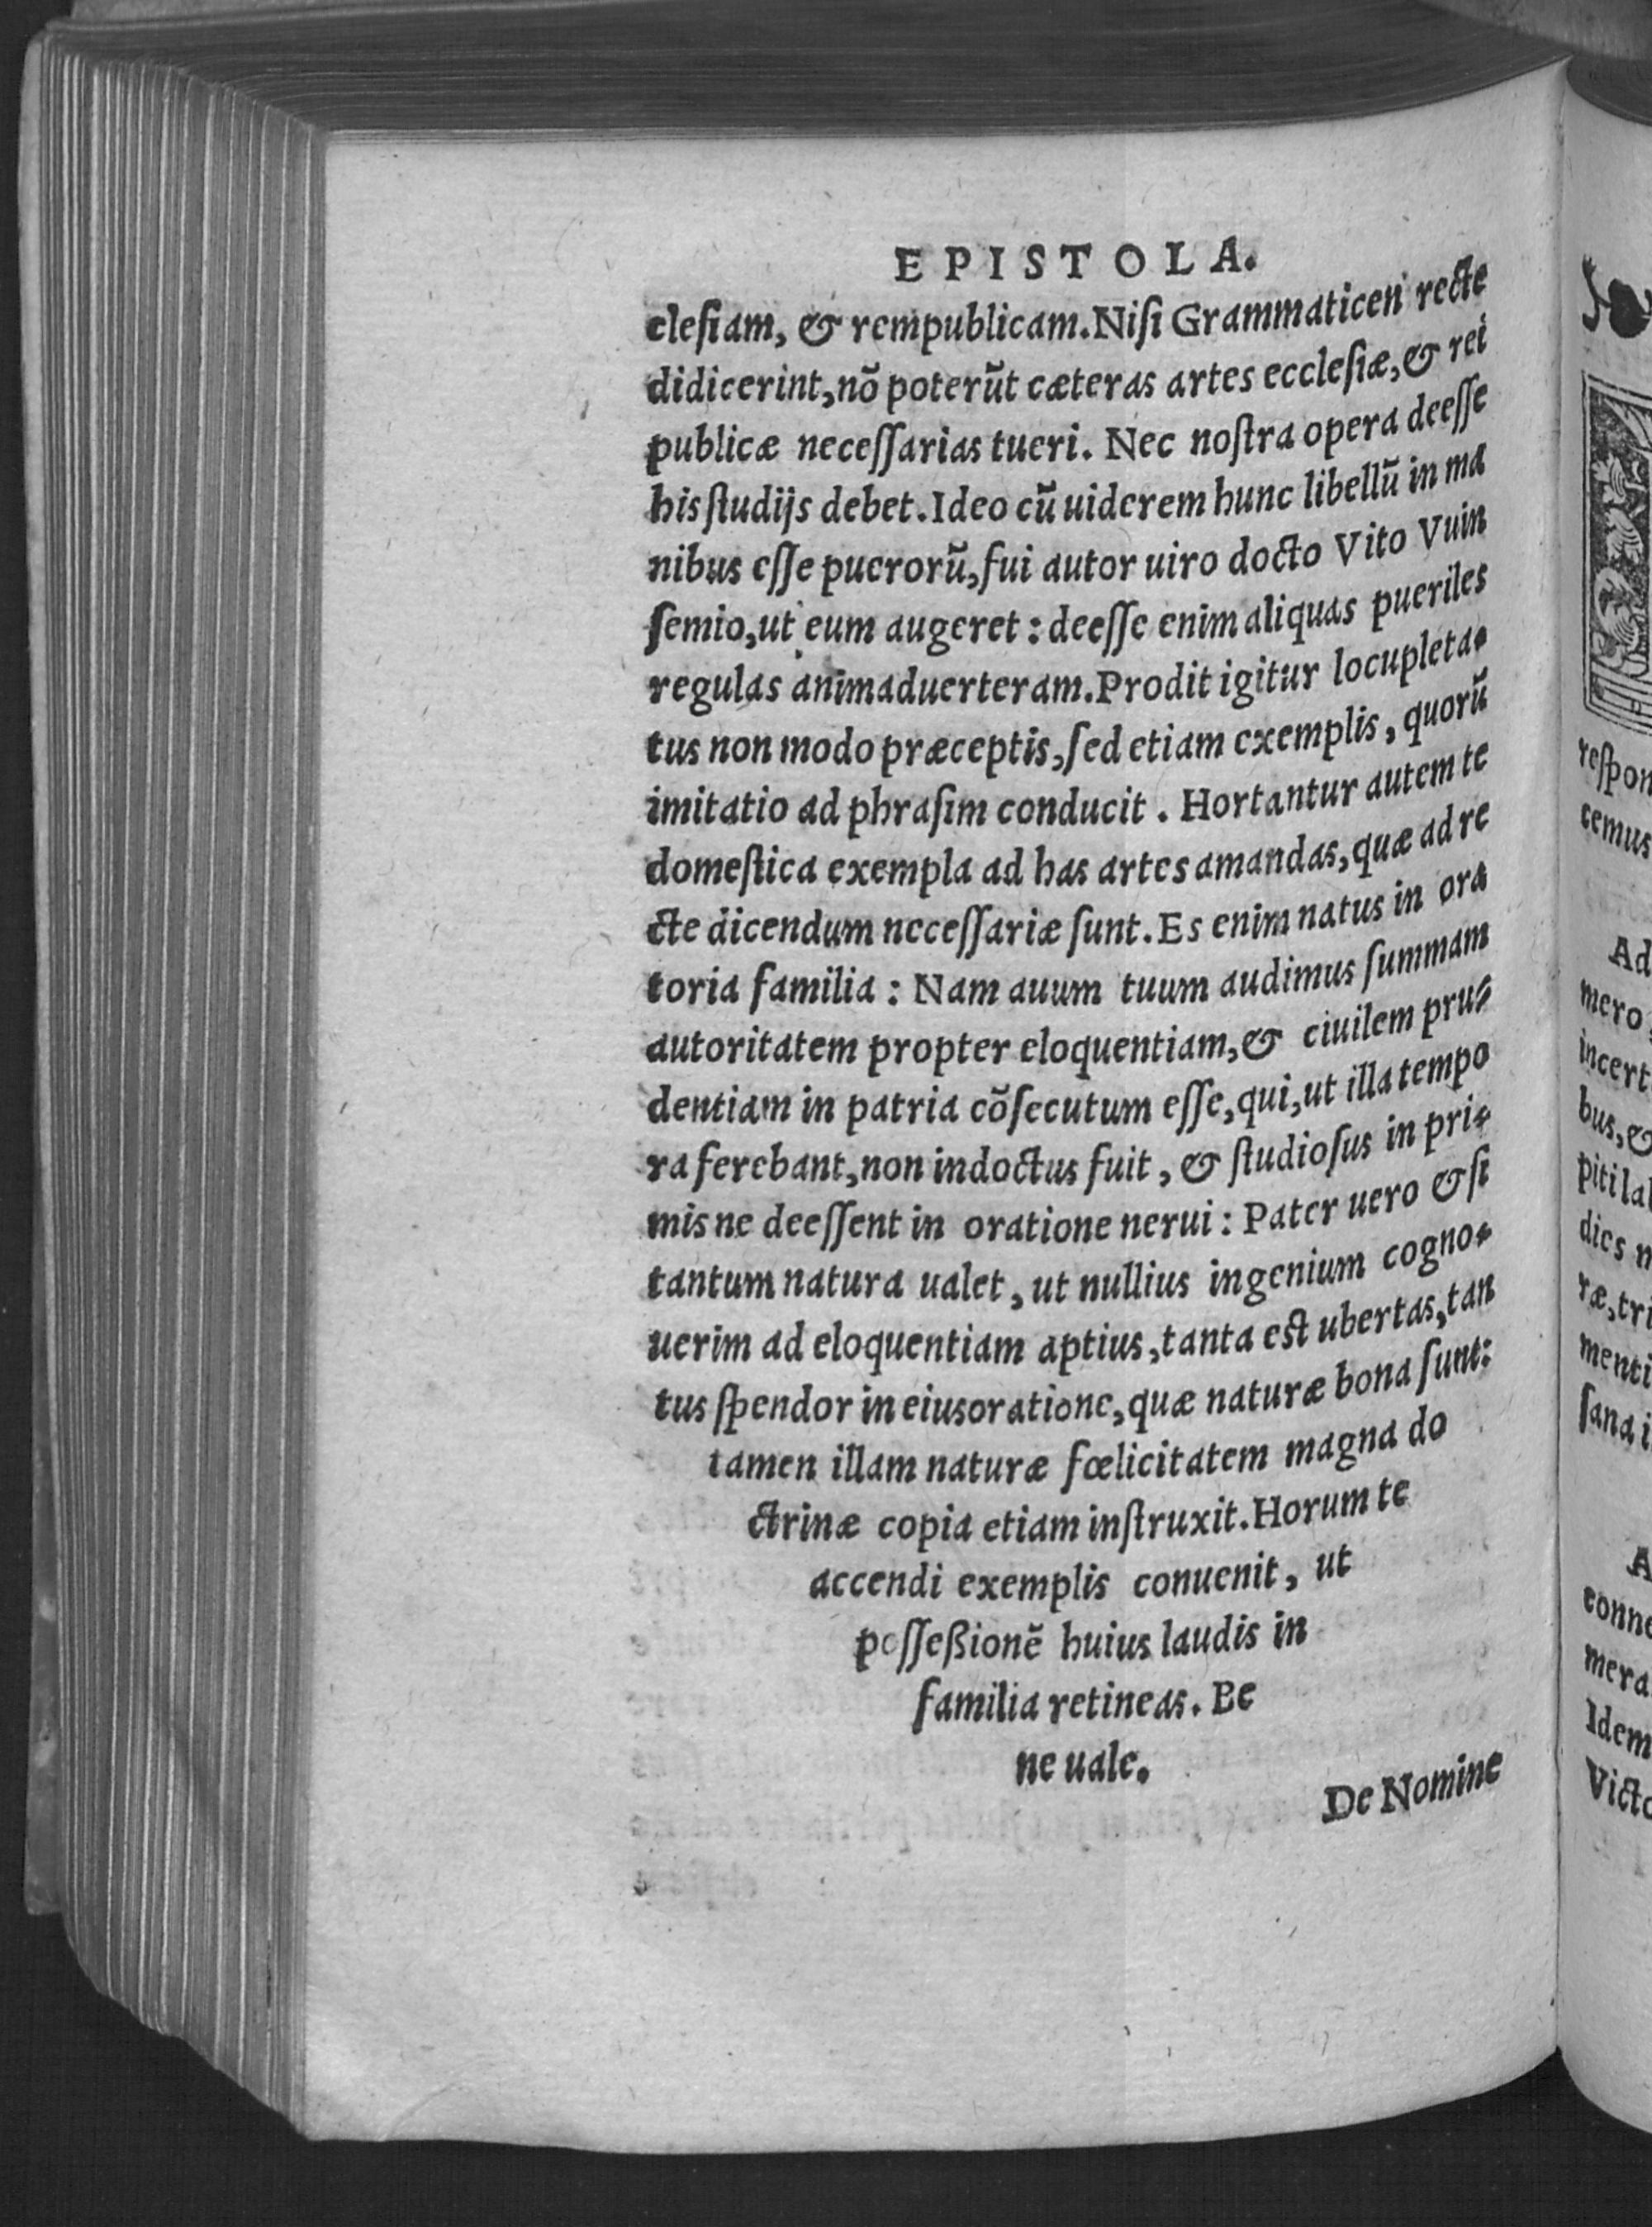 EPISTOLA.
cleſiam, & rempublicam. Niſi Grammaticen recte
didicerint, nõ poterũt cæteras artes eccleſiæ, & rei
publicæ neceſſarias tueri. Nec noſtra opera deeſſe
his ſtudijs debet. Ideo cũ uiderem hunc libellũ in ma
nibus eſſe puerorũ, fui autor uiro docto Vito Vuin
ſemio, ut eum augeret : deeſſe enim aliquas pueriles
regulas animaduerteram. Prodit igitur locupleta-
tus non modo præceptis, ſed etiam exemplis, quorũ
imitatio ad phraſim conducit. Hortantur autem te
domeſtica exempla ad has artes amandas, quæ ad re
cte dicendum neceſſariæ ſunt. Es enim natus in ora
toria familia : Nam auum tuum audimus ſummam
autoritatem propter eloquentiam, & ciuilem pru-
dentiam in patria cõſecutum eſſe, qui, ut illa tempo
ra ferebant, non indoctus fuit, & ſtudioſus in pri-
mis ne deeſſent in oratione nerui : Pater uero & ſi
tantum natura ualet, ut nullius ingenium cogno-
uerim ad eloquentiam aptius, tanta eſt ubertas, tan
tus ſpendor in eius oratione, quæ naturæ bona ſunt:
tamen illam naturæ fœlicitatem magna do
ctrinæ copia etiam inſtruxit. Horum te
accendi exemplis conuenit, ut
poſſeßionẽ huius laudis in
familia retineas. Be
ne uale.
De Nomine
reſpon
cemus
Ad
mero,
incert
bus, &
piti la
dies n
ræ, tri
menti
ſana i
A
conne
mera
Idem
Victo